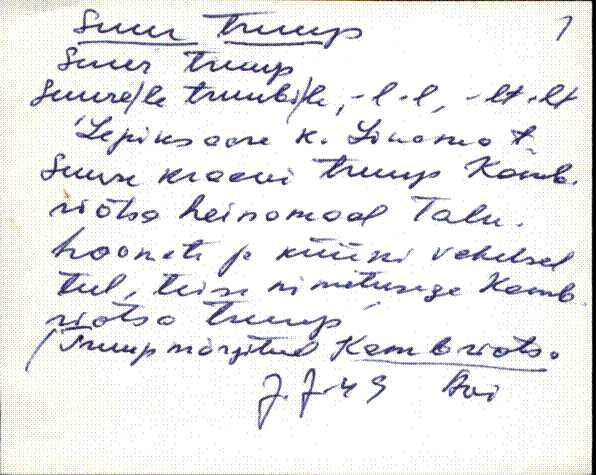 Suur truup 1
Suur truup
Suure/le truubi/le, -l -l, -lt -lt
Lepiksaare k. Linamo t.
Suure kraavi truup Kamb-
riõtsa heinamaal Talu-
hoonete ja küüni vahelsel
teel, teise nimetusega Kamb-
riõtsa truup
(Truup märgitud Kambriõtsa
J. J. 49